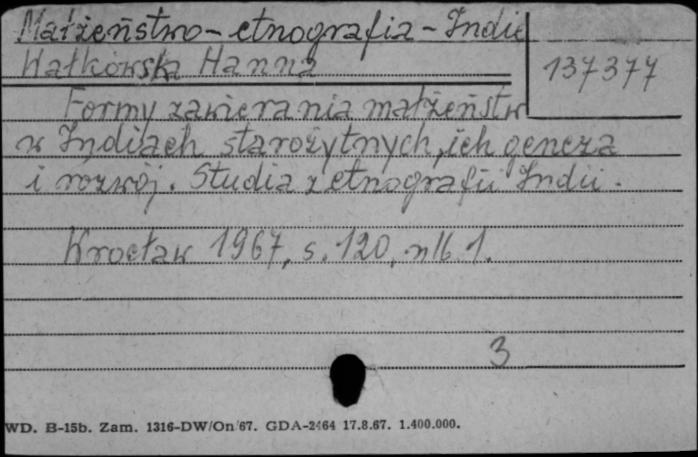 Małżeństwo - etnografia - Indie
137377
Wałkowska Hanna
Formy zawierania małżeństw
w Indiach starożytnych, ich geneza
i rozwój. Studia z etnografii Indii.
Wrocław 1967, s. 120, nlb 1.
3
WD. B-15b. Zam. 1316-DW/On/67. GDA-2464 17.8.67. 1.400.000.